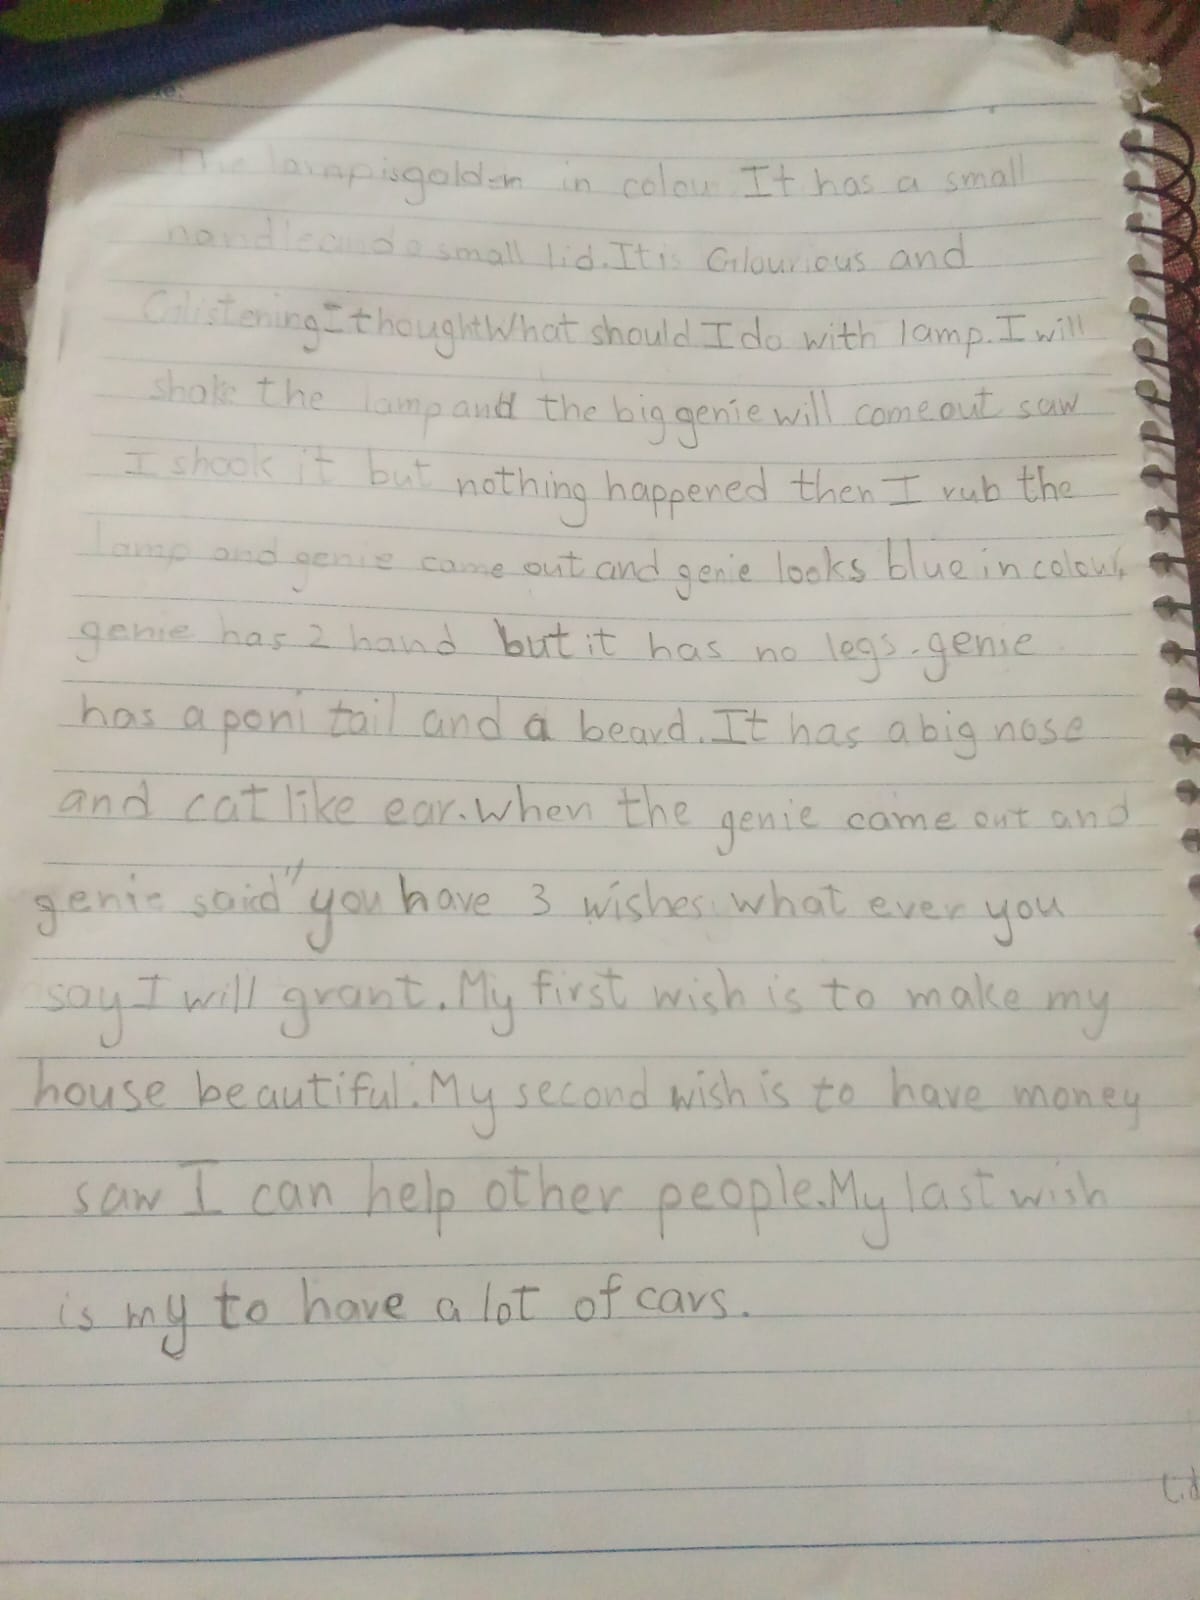 The lamp is golden in colour It has a small
handle and a small lid. It is Glourious and
Glistening I thought What should I do with lamp. I will
shake the lamp and the big genie will come out saw
I shook it but nothing happened then I rub the
lamp and genie came out and genie looks blue in colour,
genie has 2 hand but it has no legs. genie
has a poni tail and a beard. It has a big nose
and cat like ear. when the genie came out and
genie said "you have 3 wishes. what ever you
say I will grant. My first wish is to make my
house beautiful. My second wish is to have money
saw I can help other people. My last wish
is my to have a lot of cars.